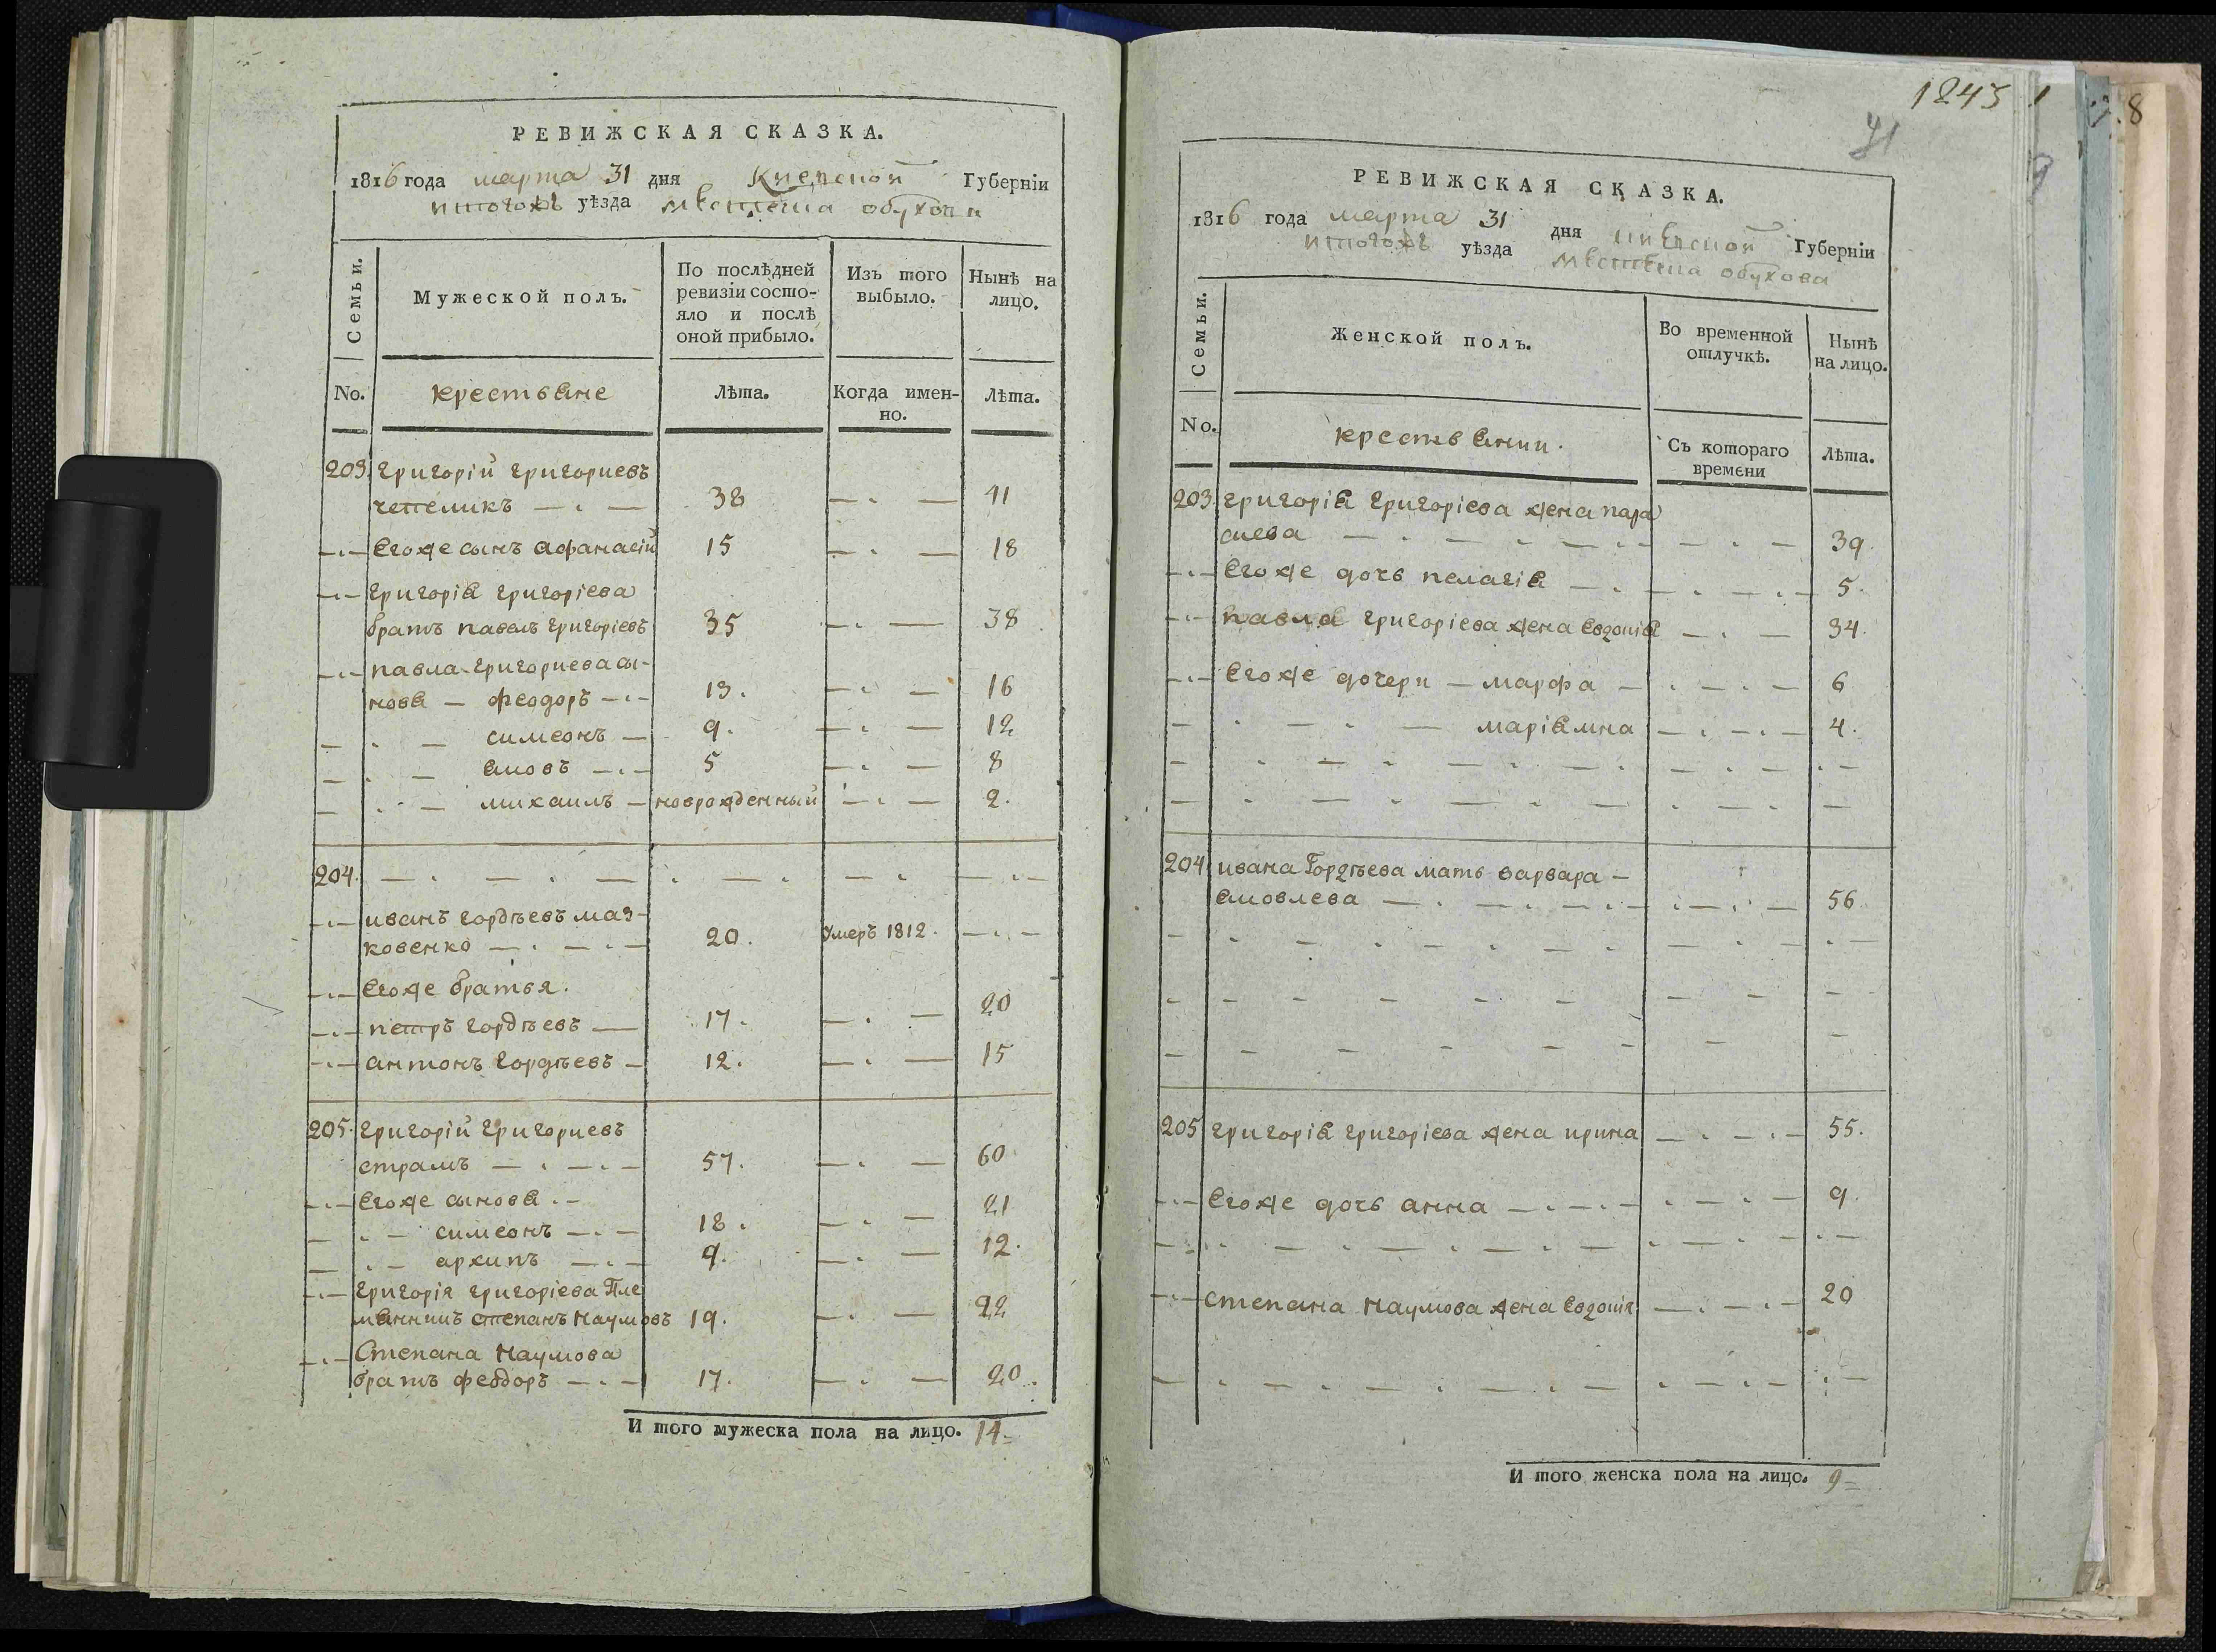 РЕВИЖСКАЯ СКАЗКА.
1816 года марта 31 дня Киевской Губерніи
тогожъ уѣзда мѣстечка обухова
Семьи.
Мужеской полъ.
По послѣдней
ревизіи состо-
яло и послѣ
оной прибыло.
Изъ того
выбыло.
Нынѣ на
лицо.
No.
крестьяне
Лѣта.
Когда имен-
но.
Лѣта.
203. григорій григориевъ
38 — 41
— Егоже сынъ афанасій 15 — 18
— григорія григоріева
братъ павелъ григоріевъ 35 — 38
— павла григориева сы-
новя — феодоръ — 13. — 16
— симеонъ — 9. — 12
— яковъ — 5 — 8
— михаилъ — новрожденный — 2.
204. —
— иванъ гордѣевъ маз-
ковенко — 20. Умеръ 1812. —
— Егоже братья.
— петръ гордѣевъ — 17. — 20
— антонъ гордѣевъ — 12. — 15
205. григорій григориевъ
страшъ — 57. — 60
— Егоже сыновя. —
— симеонъ — 18. — 21
— архипъ — 9. — 12.
— григорія григоріева Пле
мянникъ степанъ наумовъ 19. — 22
— Степана наумова
братъ феодоръ — 17. — 20.
И того мужеска пола на лицо. 14
1243
РЕВИЖСКАЯ СКАЗКА.
1816 года марта 31 дня киевской Губерніи
тогожъ уѣзда мѣстечка обухова
Семьи.
Женской полъ.
Во временной
отлучкѣ.
Нынѣ
на лицо.
No.
крестьянки.
Съ котораго
времени
Лѣта.
203. григорія григоріева жена пара
скева — 39.
— Егоже дочь пелагія — 5.
— павла григоріева жена Евдокія — 34.
— Егоже дочери — марфа — 6
— маріямна — 4.
204 ивана Гордѣева мать варвара —
яковлева — 56
205 григорія григоріева жена ирина — 55.
— Егоже дочь анна — 9.
— степана наумова жена Евдокія — 20
И того женска пола на лицо. 9